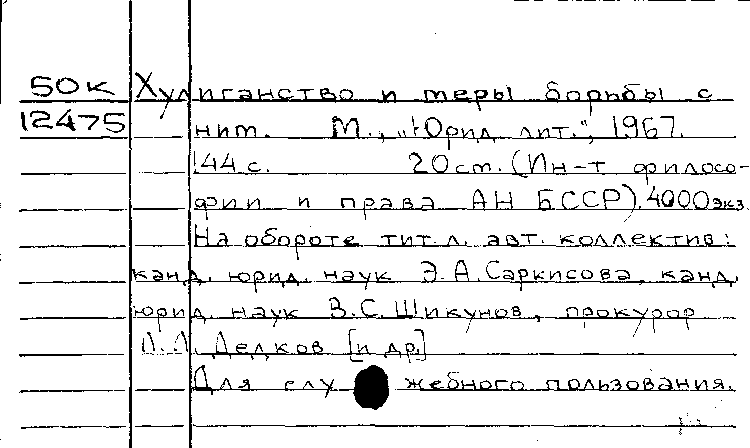 50к Хулиганство и меры борьбы с
12475 ним. М., „Юрид. лит.", 1967.
144 с. 20 см. (Ин-т филосо-
фии и права АН БССР). 4000 экз
На обороте тит. л. авт. коллектив:
канд. юрид. наук Э.А. Саркисова, канд.
юрид. наук В.С. Шикунов, прокурор
Л.Л. Дедков [и др.]
Для служебного пользования.